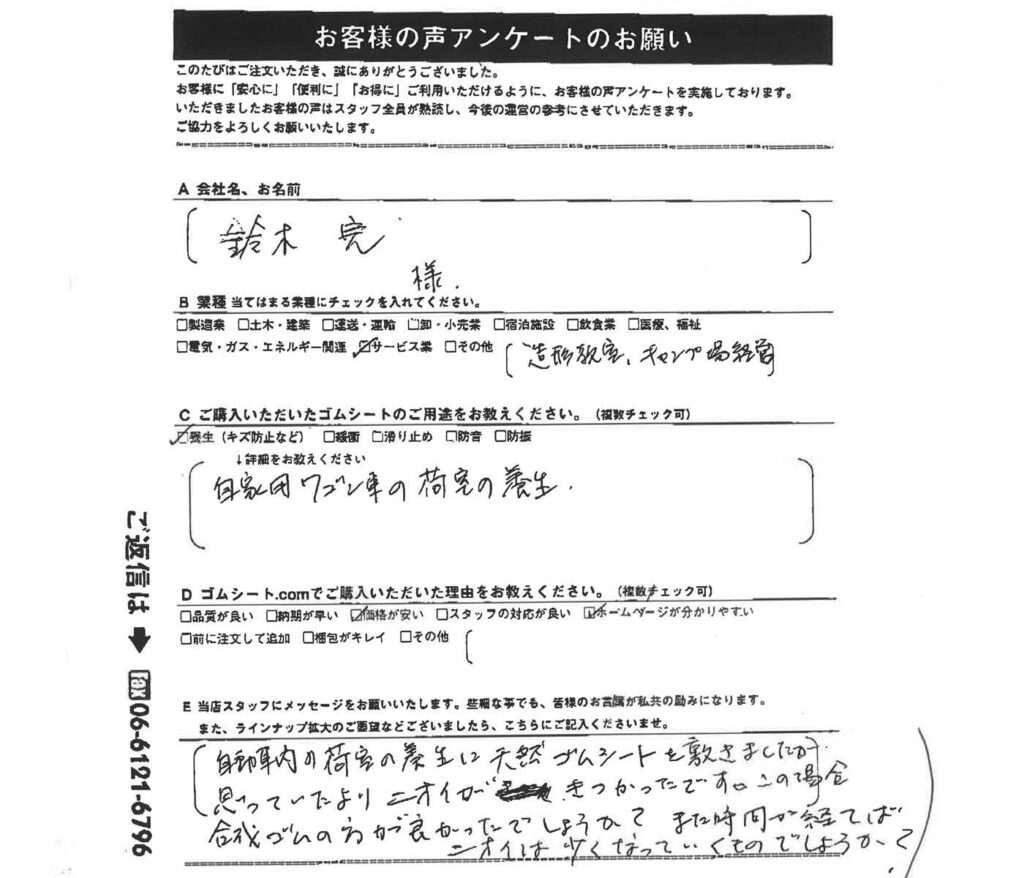 お客様の声アンケートのお願い
このたびはご注文いただき、誠にありがとうございました。
お客様に「安心に」「便利に」「お得に」ご利用いただけるように、お客様の声アンケートを実施しております。
いただきましたお客様の声はスタッフ全員が熟読し、今後の運営の参考にさせていただきます。
ご協力をよろしくお願いいたします。
A 会社名、お名前
鈴木 完
様.
B 業種 当てはまる業種にチェックを入れてください。
□製造業 □土木・建築 □運送・運輸 □卸・小売業 □宿泊施設 □飲食業 □医療、福祉
□電気・ガス・エネルギー関連 ☑サービス業 □その他 (造形教室、キャンプ場経営)
C ご購入いただいたゴムシートのご用途をお教えください。（複数チェック可）
☑養生（キズ防止など） □緩衝 □滑り止め □防音 □防振
↓詳細をお教えください
自家用ワゴン車の荷室の養生.
D ゴムシート.comでご購入いただいた理由をお教えください。（複数チェック可）
□品質が良い □納期が早い ☑価格が安い □スタッフの対応が良い ☑ホームページが分かりやすい
□前に注文して追加 □梱包がキレイ □その他
E 当店スタッフにメッセージをお願いいたします。些細な事でも、皆様のお言葉が私共の励みになります。
また、ラインナップ拡大のご要望などございましたら、こちらにご記入くださいませ。
自動車内の荷室の養生に天然ゴムシートを敷きましたが
思っていたよりニオイが きつかったです。この場合
合成ゴムの方が良かったでしょうか? また時間が経てば
ニオイは少くなっていくものでしょうか?
ご返信は ➡ Fax06-6121-6796